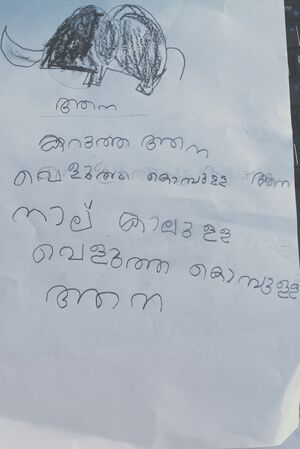 ആന
കറുത്ത ആന
വെളുത്ത കൊമ്പുള്ള ആന
നാല് കാലുള്ള
വെളുത്ത കൊമ്പുള്ള
ആന